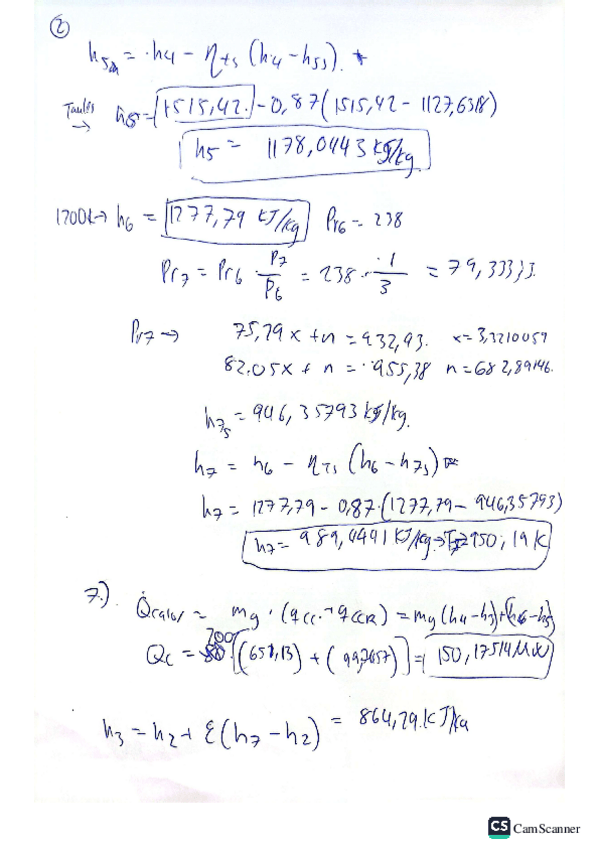 2
h5a = h4 - ηts (h4 - h5s).
Tables → h5 = 1515,42. - 0,87 (1515,42 - 1127,6318)
h5 = 1178,0443 kJ/kg
1200k → h6 = 1277,79 kJ/kg Pr6 = 238
Pr7 = Pr6 P7/P6 = 238 · 1/3 = 79,3333.
Pr7 → 75,29x + n = 932,93. x = 3,3210059
82.05x + n = 955,38 n = 682,89146.
h7s = 946,35793 kJ/kg.
h7 = h6 - ηTs (h6 - h7s)
h7 = 1277,79 - 0,87·(1277,79 - 946,35793)
h7 = 989,4441 kJ/kg → 950,19 K
7.) Qcalor = mg · (qcc + qccR) = mg (h4 - h3) + (h6 - h5)
Qc = 200 [(651,13) + (99,7457)] = 150,17514 MW
h3 = h2 + ε(h7 - h2) = 864,29 kJ/kg
CS CamScanner